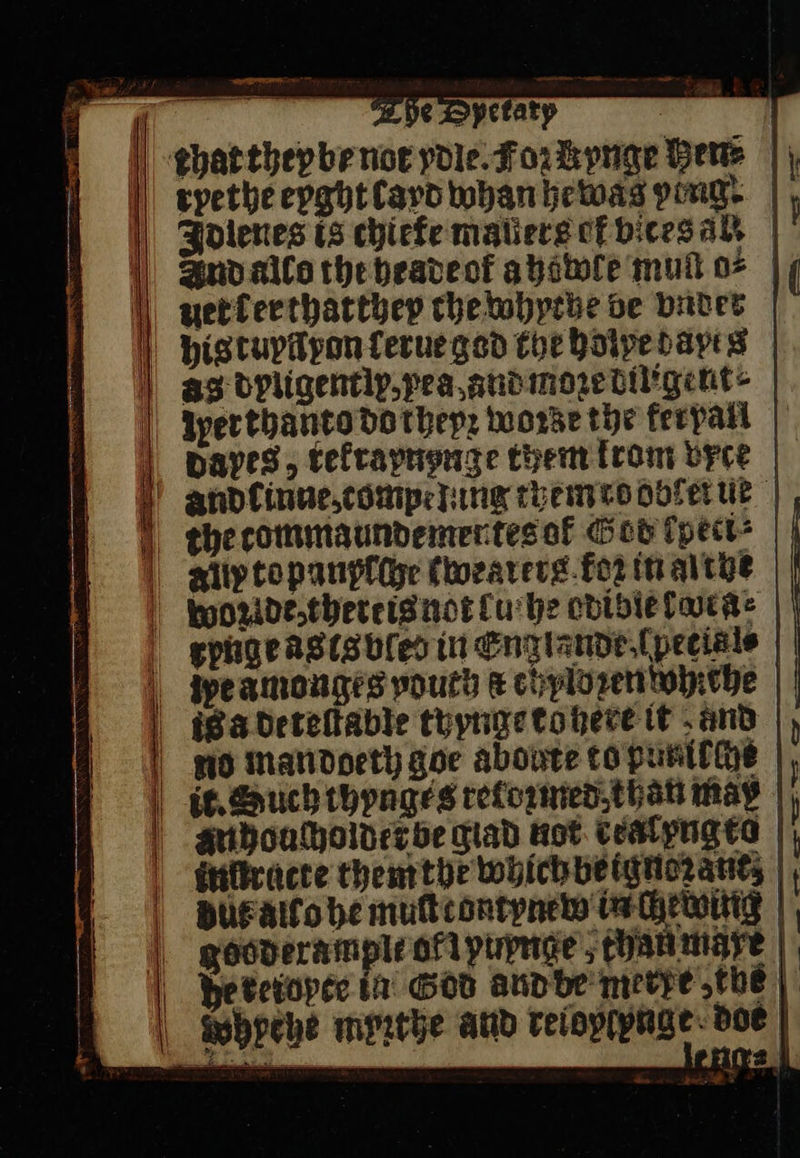 The Dyetary
that they be not ydle. For kynge Hen-
rye the eyght sayd whan he was yong.
Idlenes is chiefe maisters of vices all
And also the heade of a howse must o-
uerse that they the whyche be vnder
his tuytyon serue god the holye dayes
as dyligently, yea, and more diligent-
lyer than to do theyr worke the feryall
dayes, refraynynge them from vyce
and sinne, compellung them to obserue
the commaundementes of God speci-
ally to punysshe swearers. for in al the
worlde, there is not suche odible swea-
rynge as is vsed in Englande, special-
lye amonges youth & chyldren whiche
is a detestable thynge to here it. and
no man doeth goe aboute to punisshe
it. Such thynges reformed, than may
an housholder be glad not ceasynge to
instructe them the which be ignorant,
but also he must contynew in shewing
good example of lyuynge, than maye
he reioyce in God and be merye, the
whyche myrthe and reioysynge doe
lenge-